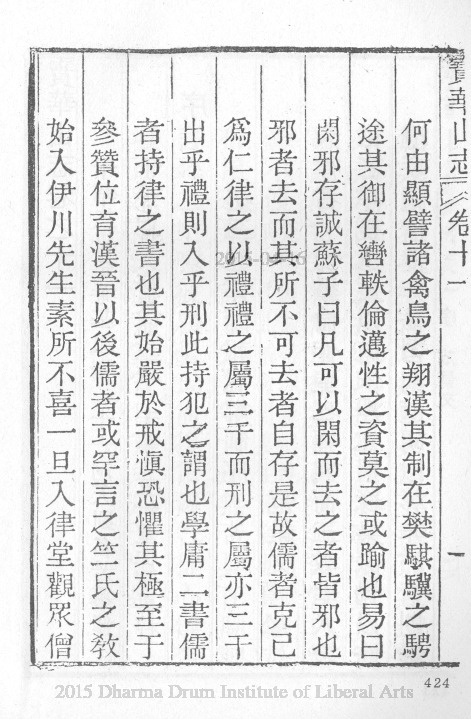 寶華山志 卷十一 一
何由顯譬諸禽鳥之翔漢其制在樊騏驥之騁
途其御在轡軼倫邁性之資莫之或踰也易曰
閑邪存誠蘇子曰凡可以閑而去之者皆邪也
邪者去而其所不可去者自存是故儒者克己
爲仁律之以禮禮之屬三千而刑之屬亦三千
出乎禮則入乎刑此持犯之謂也學庸二書儒
者持律之書也其始嚴於戒愼恐懼其極至于
參贊位育漢晉以後儒者或罕言之竺氏之敎
始入伊川先生素所不喜一旦入律堂觀眾僧
424
2015 Dharma Drum Institute of Liberal Arts